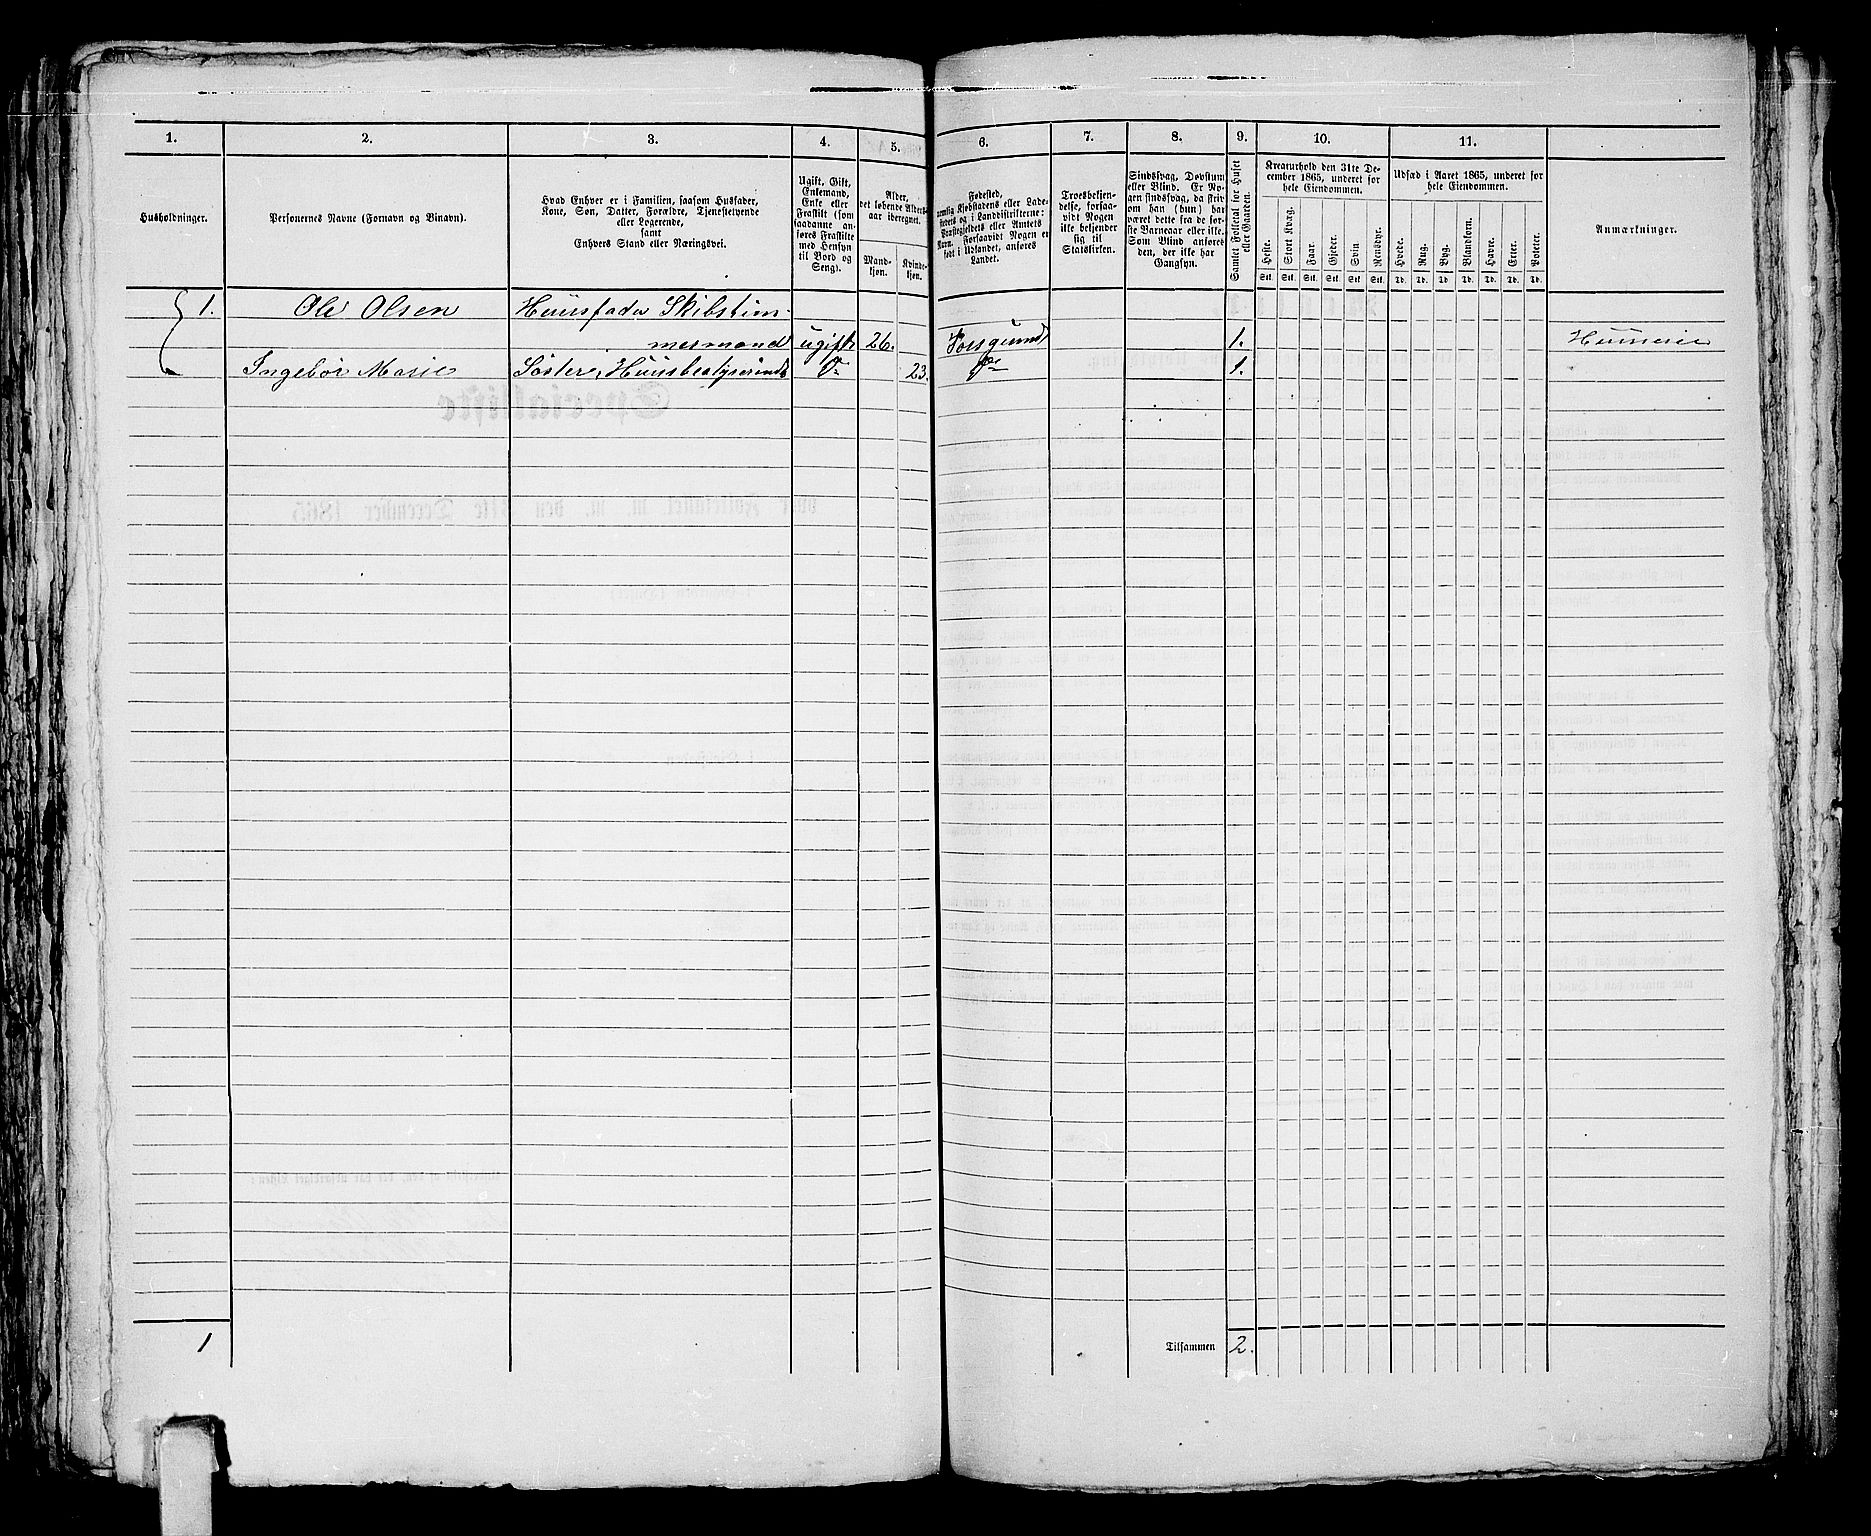 1. 2. 3. 4. 5. 6. 7. 8. 9. 10. 11.
Husholdninger.
Personernes Navne (Fornavn og Binavn).
Hvad Enhver er i Familien, saasom Husfader,
Kone, Søn, Datter, Forældre, Tjenestetyende
eller Logerende,
samt
Enhvers Stand eller Næringsvei.
Ugift, Gift,
Enkemand,
Enke eller
Fraskilt (som
saadanne an-
føres Fraskilte
med Hensyn
til Bord og
Seng).
Alder,
det løbende Alders-
aar iberegnet.
Mand-
kjøn.
Kvinde-
kjøn.
Fødested,
nemlig Kjøbstadens eller Lade-
stedets og i Landdistrikterne:
Præstegjeldets eller Amtets
Navn. Forsaavidt Nogen er
født i Udlandet, anføres
Landet.
Troesbekjen-
delse, forsaa-
vidt Nogen
ikke bekjender
sig til
Statskirken.
Sindssvag, Døvstum
eller Blind. Er No-
gen sindssvag, da skriv
om han (hun) har
været dette fra de før-
ste Barneaar eller ikke.
Som Blind anføres
den, der ikke har
Gangsyn.
Samlet Folketal for Huset
eller Gaarden.
Kreaturhold den 31te De-
cember 1865, underet for
hele Eiendommen.
Heste. Stort Kvæg. Faar. Gjeder. Svin. Rensdyr.
Stk. Stk. Stk. Stk. Stk. Stk.
Udsæd i Aaret 1865, underet for
hele Eiendommen.
Hvede. Rug. Byg. Blandkorn. Havre. Erter. Poteter.
Td. Td. Td. Td. Td. Td. Td.
Anmærkninger.
1. Ole Olsen Huusfader Skibstøm-
mermand ugift 26. Porsgrund 1. Huuseier
Ingebor Marie Søster, Huusbestyrerinde Do 23. Do 1.
1 Tilsammen 2.